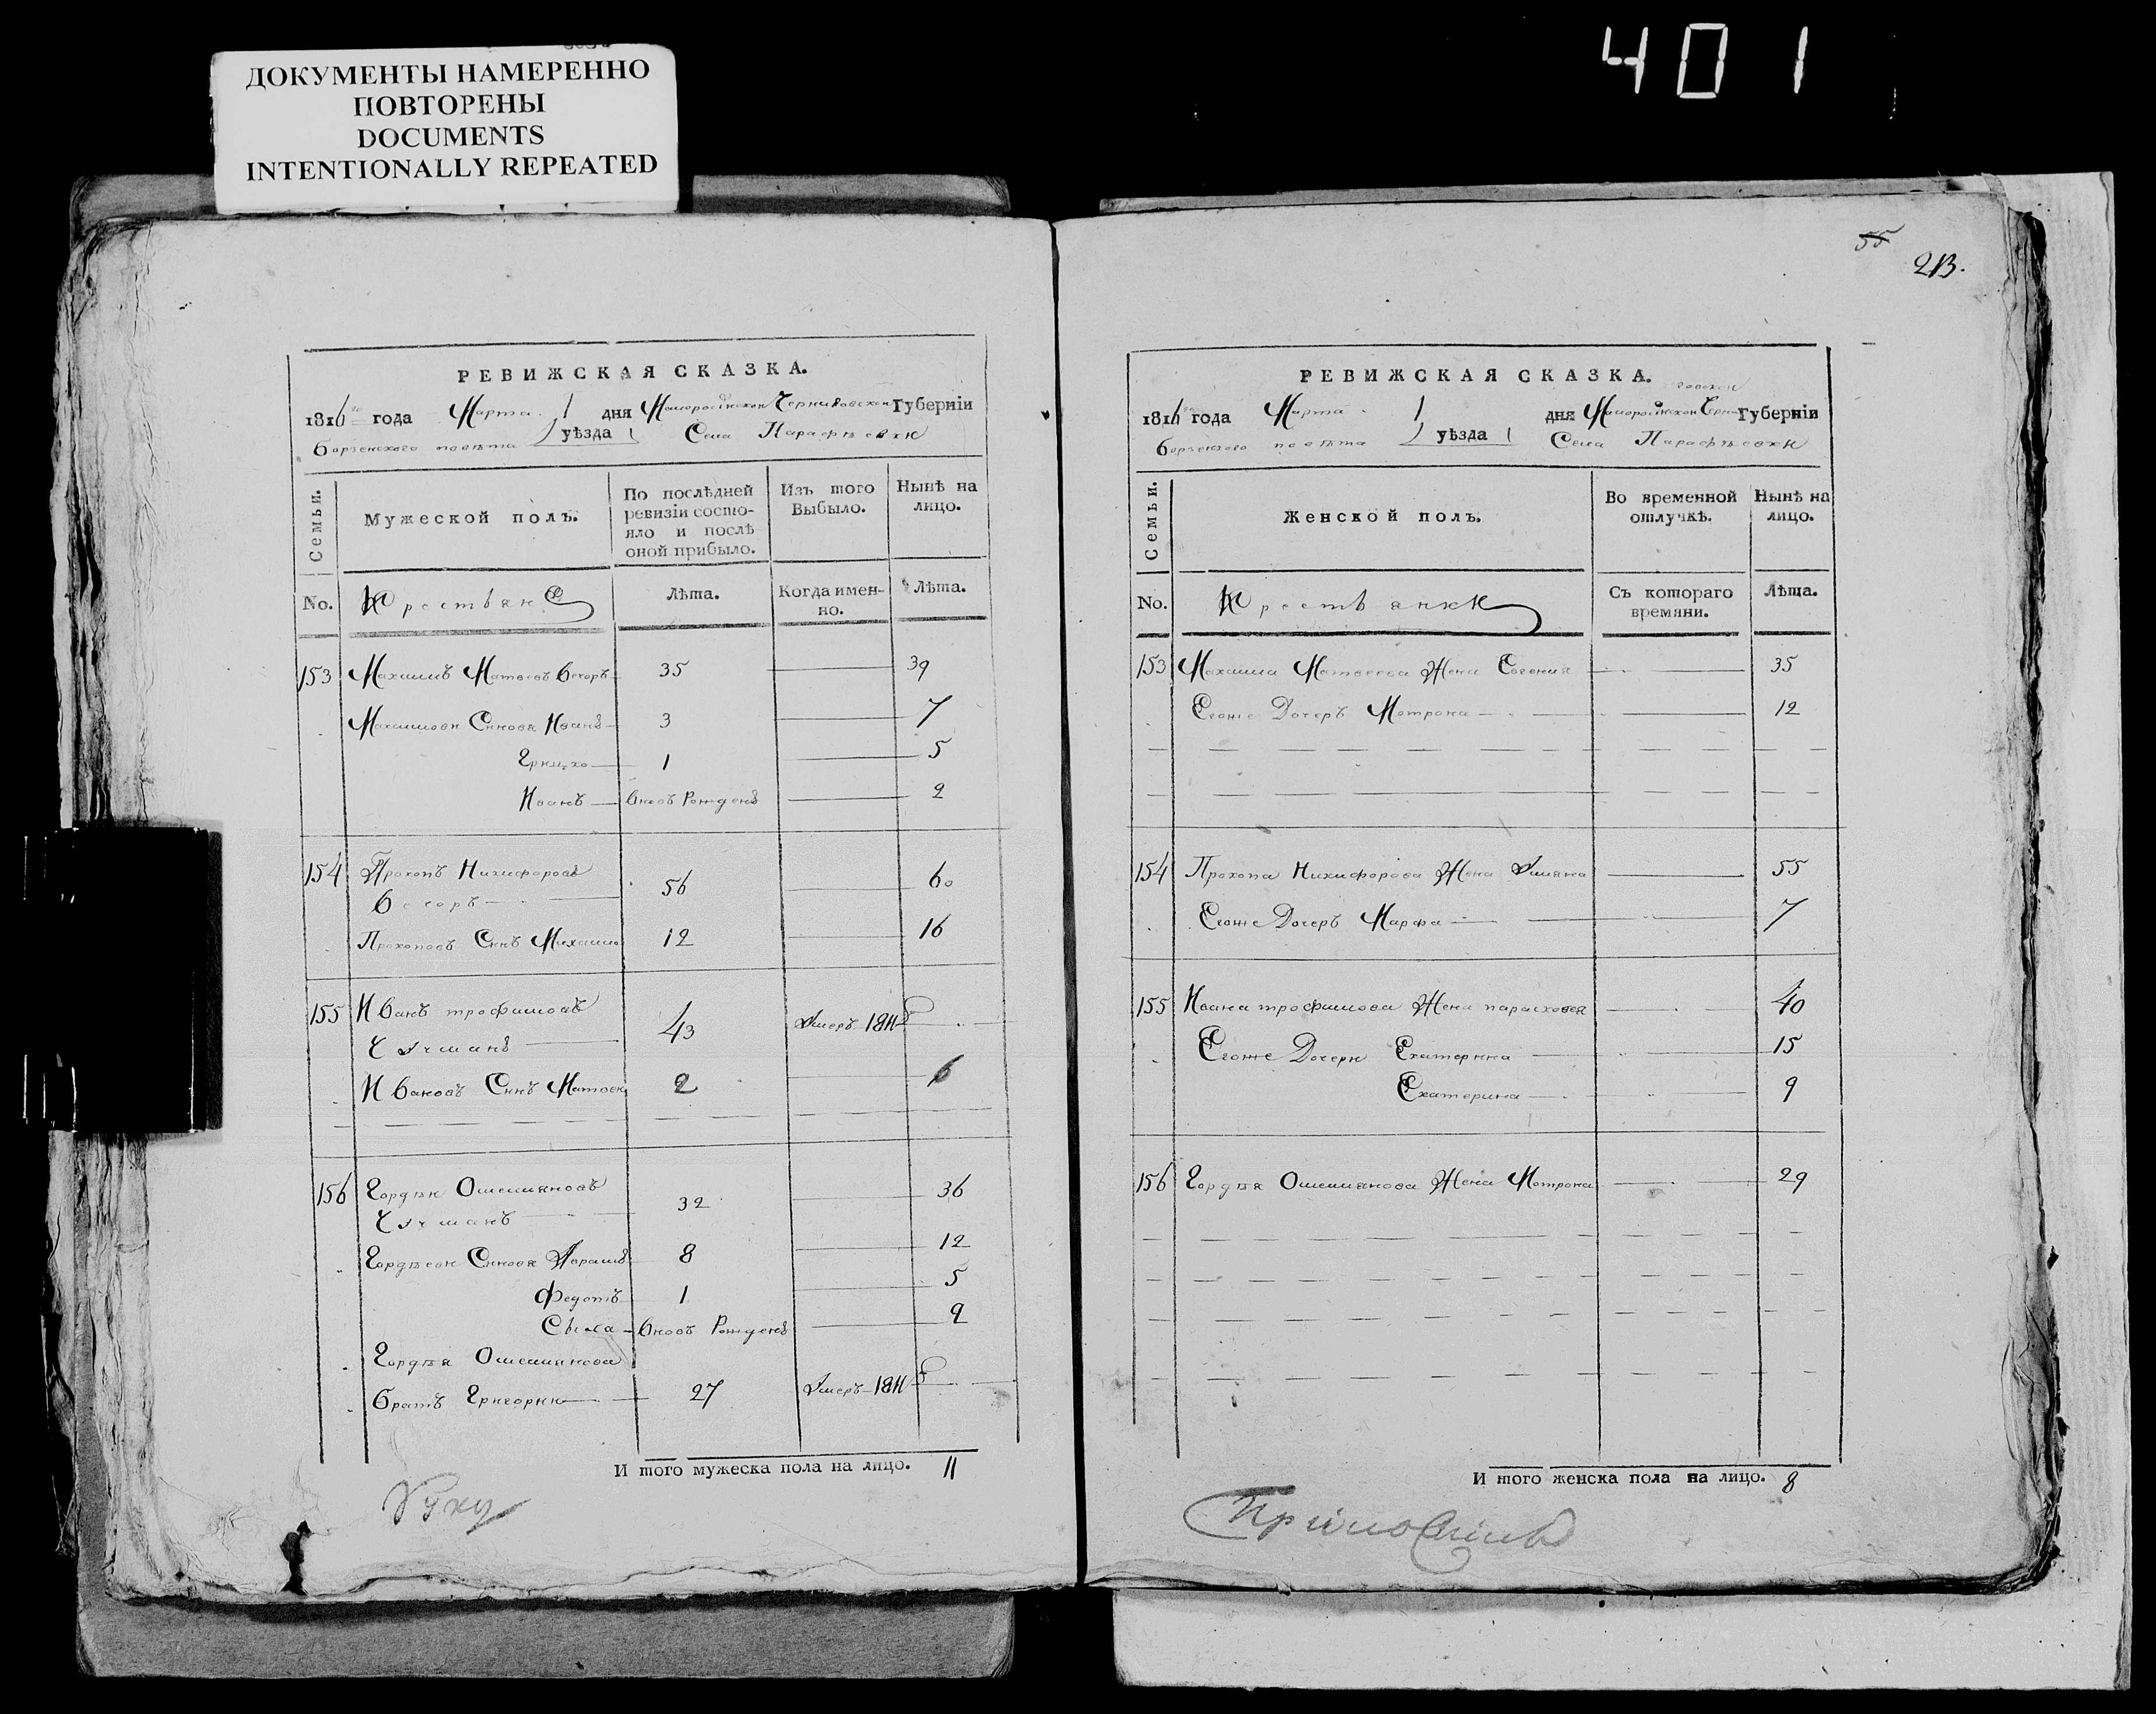 401
ДОКУМЕНТЫ НАМЕРЕННО
ПОВТОРЕНЫ
DOCUMENTS
INTENTIONALLY REPEATED
РЕВИЖСКАЯ СКАЗКА.
1816 года Марта 1 дня Малоросійской Черниговской Губерніи
борзенского повѣта уѣзда Села Парафѣевки
Семьи.
Мужеской полъ.
По послѣдней
ревизіи состо-
яло и послѣ
оной прибыло.
Изъ того
Выбыло.
Нынѣ на
лицо.
No.
Крестьяне
Лѣта.
Когда имен-
но.
Лѣта.
153 Максимъ Матвеевъ 35 39
Максимови Сынова Иванъ 3 7
Грицко 1 5
Иванъ вновъ Рожденъ 2
154 Прокопъ Никифоровъ
56 60
Прокоповъ Сынъ Михаило 12 16
155 Иванъ трофимовъ
43 Умеръ 1811
Ивановъ Сынъ Матвеи 2 6
156 Гордѣи Омелияновъ
32 36
Гордѣеви Сынова Абрамъ 8 12
Федотъ 1 5
Сысса вновъ Рожденъ 2
Гордѣя Омелиянова
братъ Григории 27 Умеръ 1811
И того мужеска пола на лицо. 11
Руку
55
213.
РЕВИЖСКАЯ СКАЗКА.
1816 года Марта 1 дня Малоросійской Черниговской Губерніи
борзенского повѣта уѣзда Села Парафѣевки
Семьи.
Женской полъ.
Во временной
отлучкѣ.
Нынѣ на
лицо.
No.
Крестьянки
Съ котораго
времяни.
Лѣта.
153 Максима Матвеева Жена Евгения 35
Егоже Дочеръ Мотрона 12
154 Прокопа Никифорова Жена Улияна 55
Егоже Дочеръ Марфа 7
155 Ивана трофимова Жена парасковея 40
Егоже Дочери Екатерина 15
Екатерина 9
156 Гордѣя Омелиянова Жена Мотрона 29
И того женска пола на лицо. 8